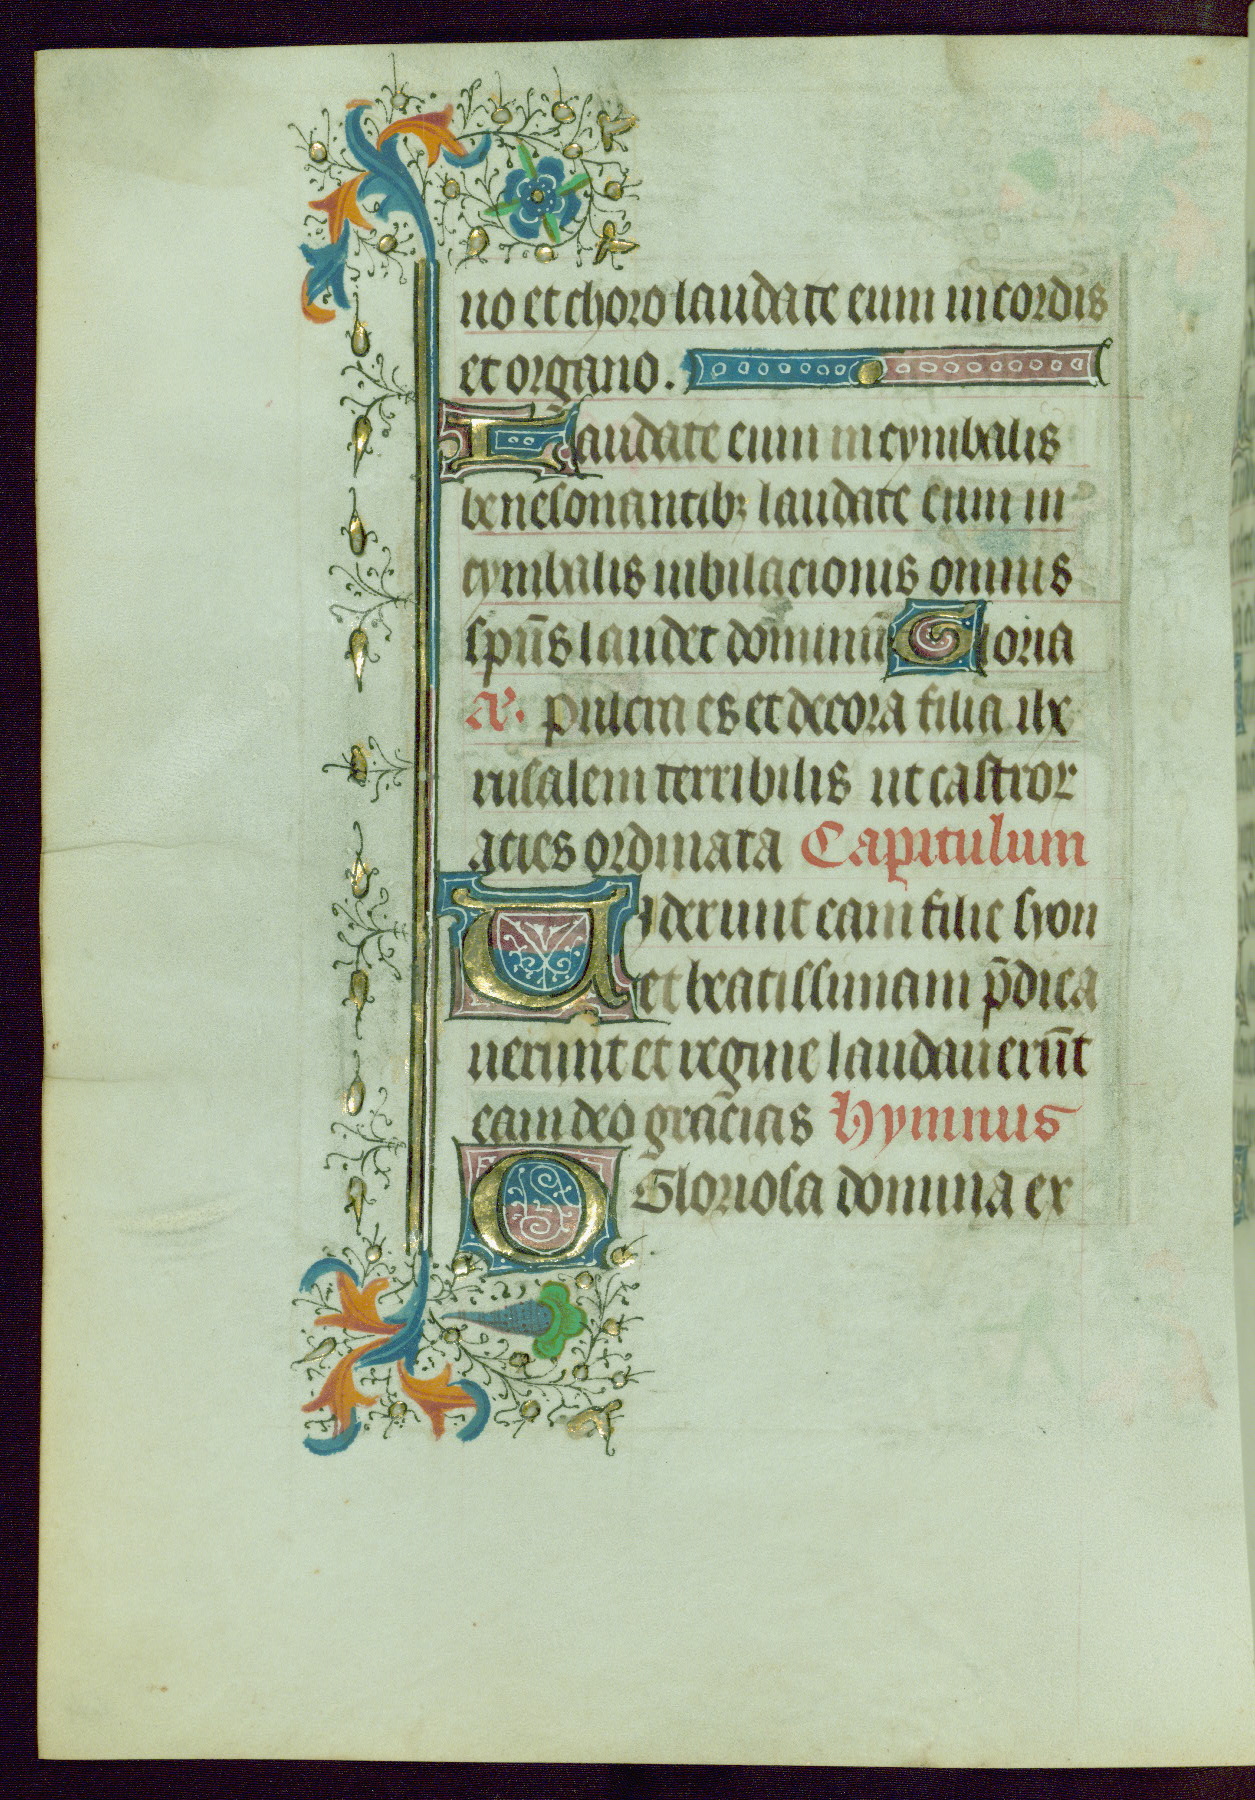 no et choro laudate eum in cordis
et organo.
Laudate eum in cymbalis
benesonantibꝫ laudate eum in
cymbalis iubilacionis omnis
sp̄us laudet dominū Gloria
A. Pulcra es et decora filia ihe
rusalem terribilis ut castror
acies ordinata Capitulum
Uiderunt eam filie syon
et beatissimam p̄dica
uerunt et regine laudauerūt
eam deo gracias Hymnus
O Gloriosa domina ex